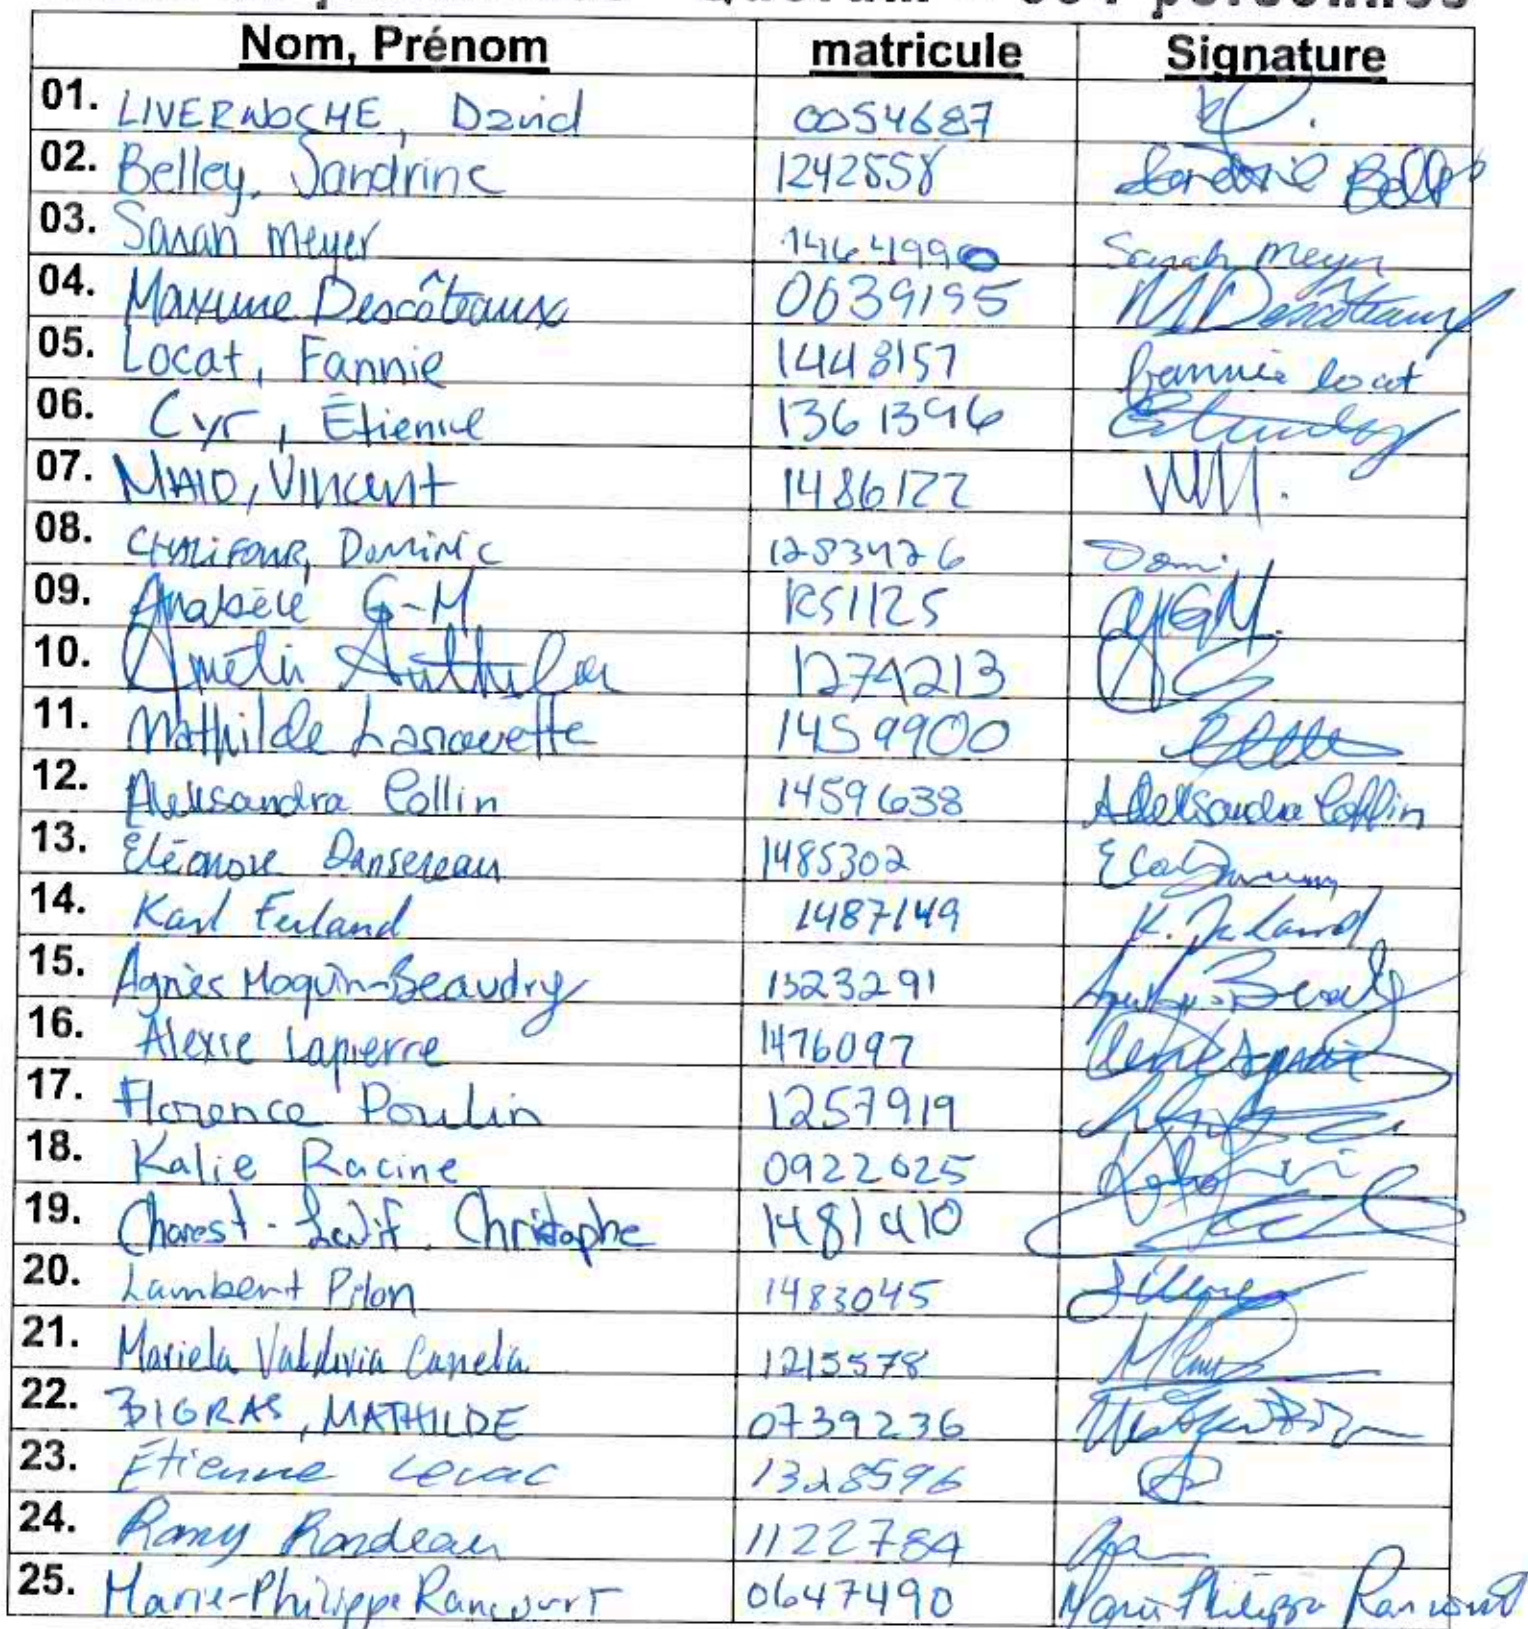 Quorum 
Nom, Prénom matricule Signature
01. LIVERNOCHE, David 0054687
02. Belley, Sandrine 1242558 Sandrine Belley
03. Sarah Meyer 1464990 Sarah Meyer
04. Maxime Descôteaux 0639195 M Descôteaux
05. Locat, Fannie 1448157 Fannie Locat
06. Cyr, Étienne 1361396
07. MAIO, Vincent 1486122
08. CHALIFOUR, Dominic 1283426 Domi
09. G-M 1251125 AMGM.
10. 1274213
11. Mathilde Larouette 1459900
12. Aleksandra Collin 1459638 Aleksandra Collin
13. Eléonore Dansereau 1485302
14. Karl Ferland 1487149 K. Ferland
15. Agnès Moquin-Beaudry 1323291
16. Alexie Lapierre 1476097
17. Florence Poulin 1257919
18. Kalie Racine 0922625
19. Charest- Christophe 1481410
20. Lambert Pilon 1483045
21. Mariela Valdivia Canela 1215578
22. BIGRAS, MATHILDE 0739236
23. Etienne Levac 1328596
24. Romy Rondeau 1122784
25. Marie-Philippe Rancourt 0647490 Marie-Philippe Rancourt